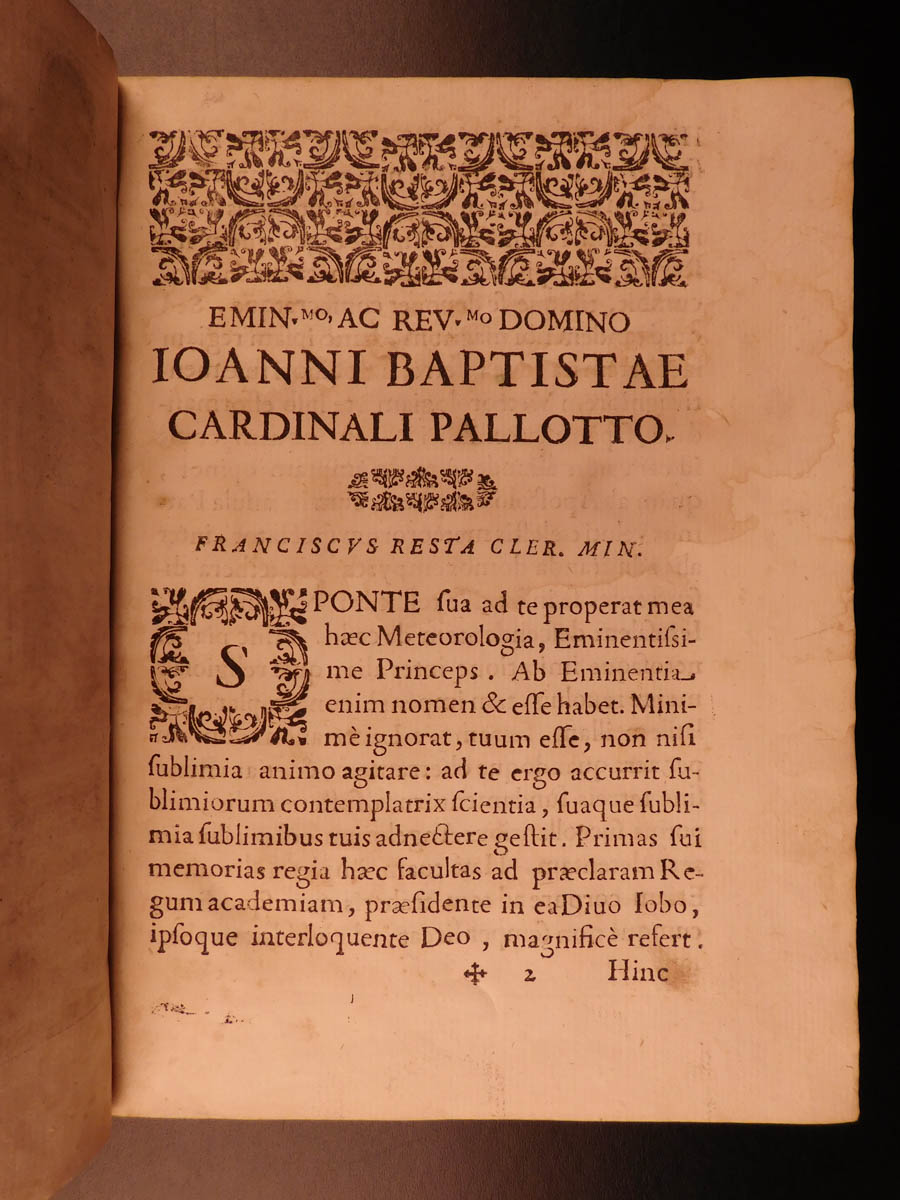 EMIN.ᴹᴼ, AC REV.ᴹᴼ DOMINO
IOANNI BAPTISTAE
CARDINALI PALLOTTO.
FRANCISCVS RESTA CLER. MIN.
SPONTE ſua ad te properat mea
hæc Meteorologia, Eminentiſsi-
me Princeps. Ab Eminentia
enim nomen & eſſe habet. Mini-
mè ignorat, tuum eſſe, non niſi
ſublimia animo agitare: ad te ergo accurrit ſu-
blimiorum contemplatrix ſcientia, ſuaque ſubli-
mia ſublimibus tuis adnectere geſtit. Primas ſui
memorias regia hæc facultas ad præclaram Re-
gum academiam, præſidente in ea Diuo Iobo,
ipſoque interloquente Deo, magnificè refert.
✣ 2 Hinc